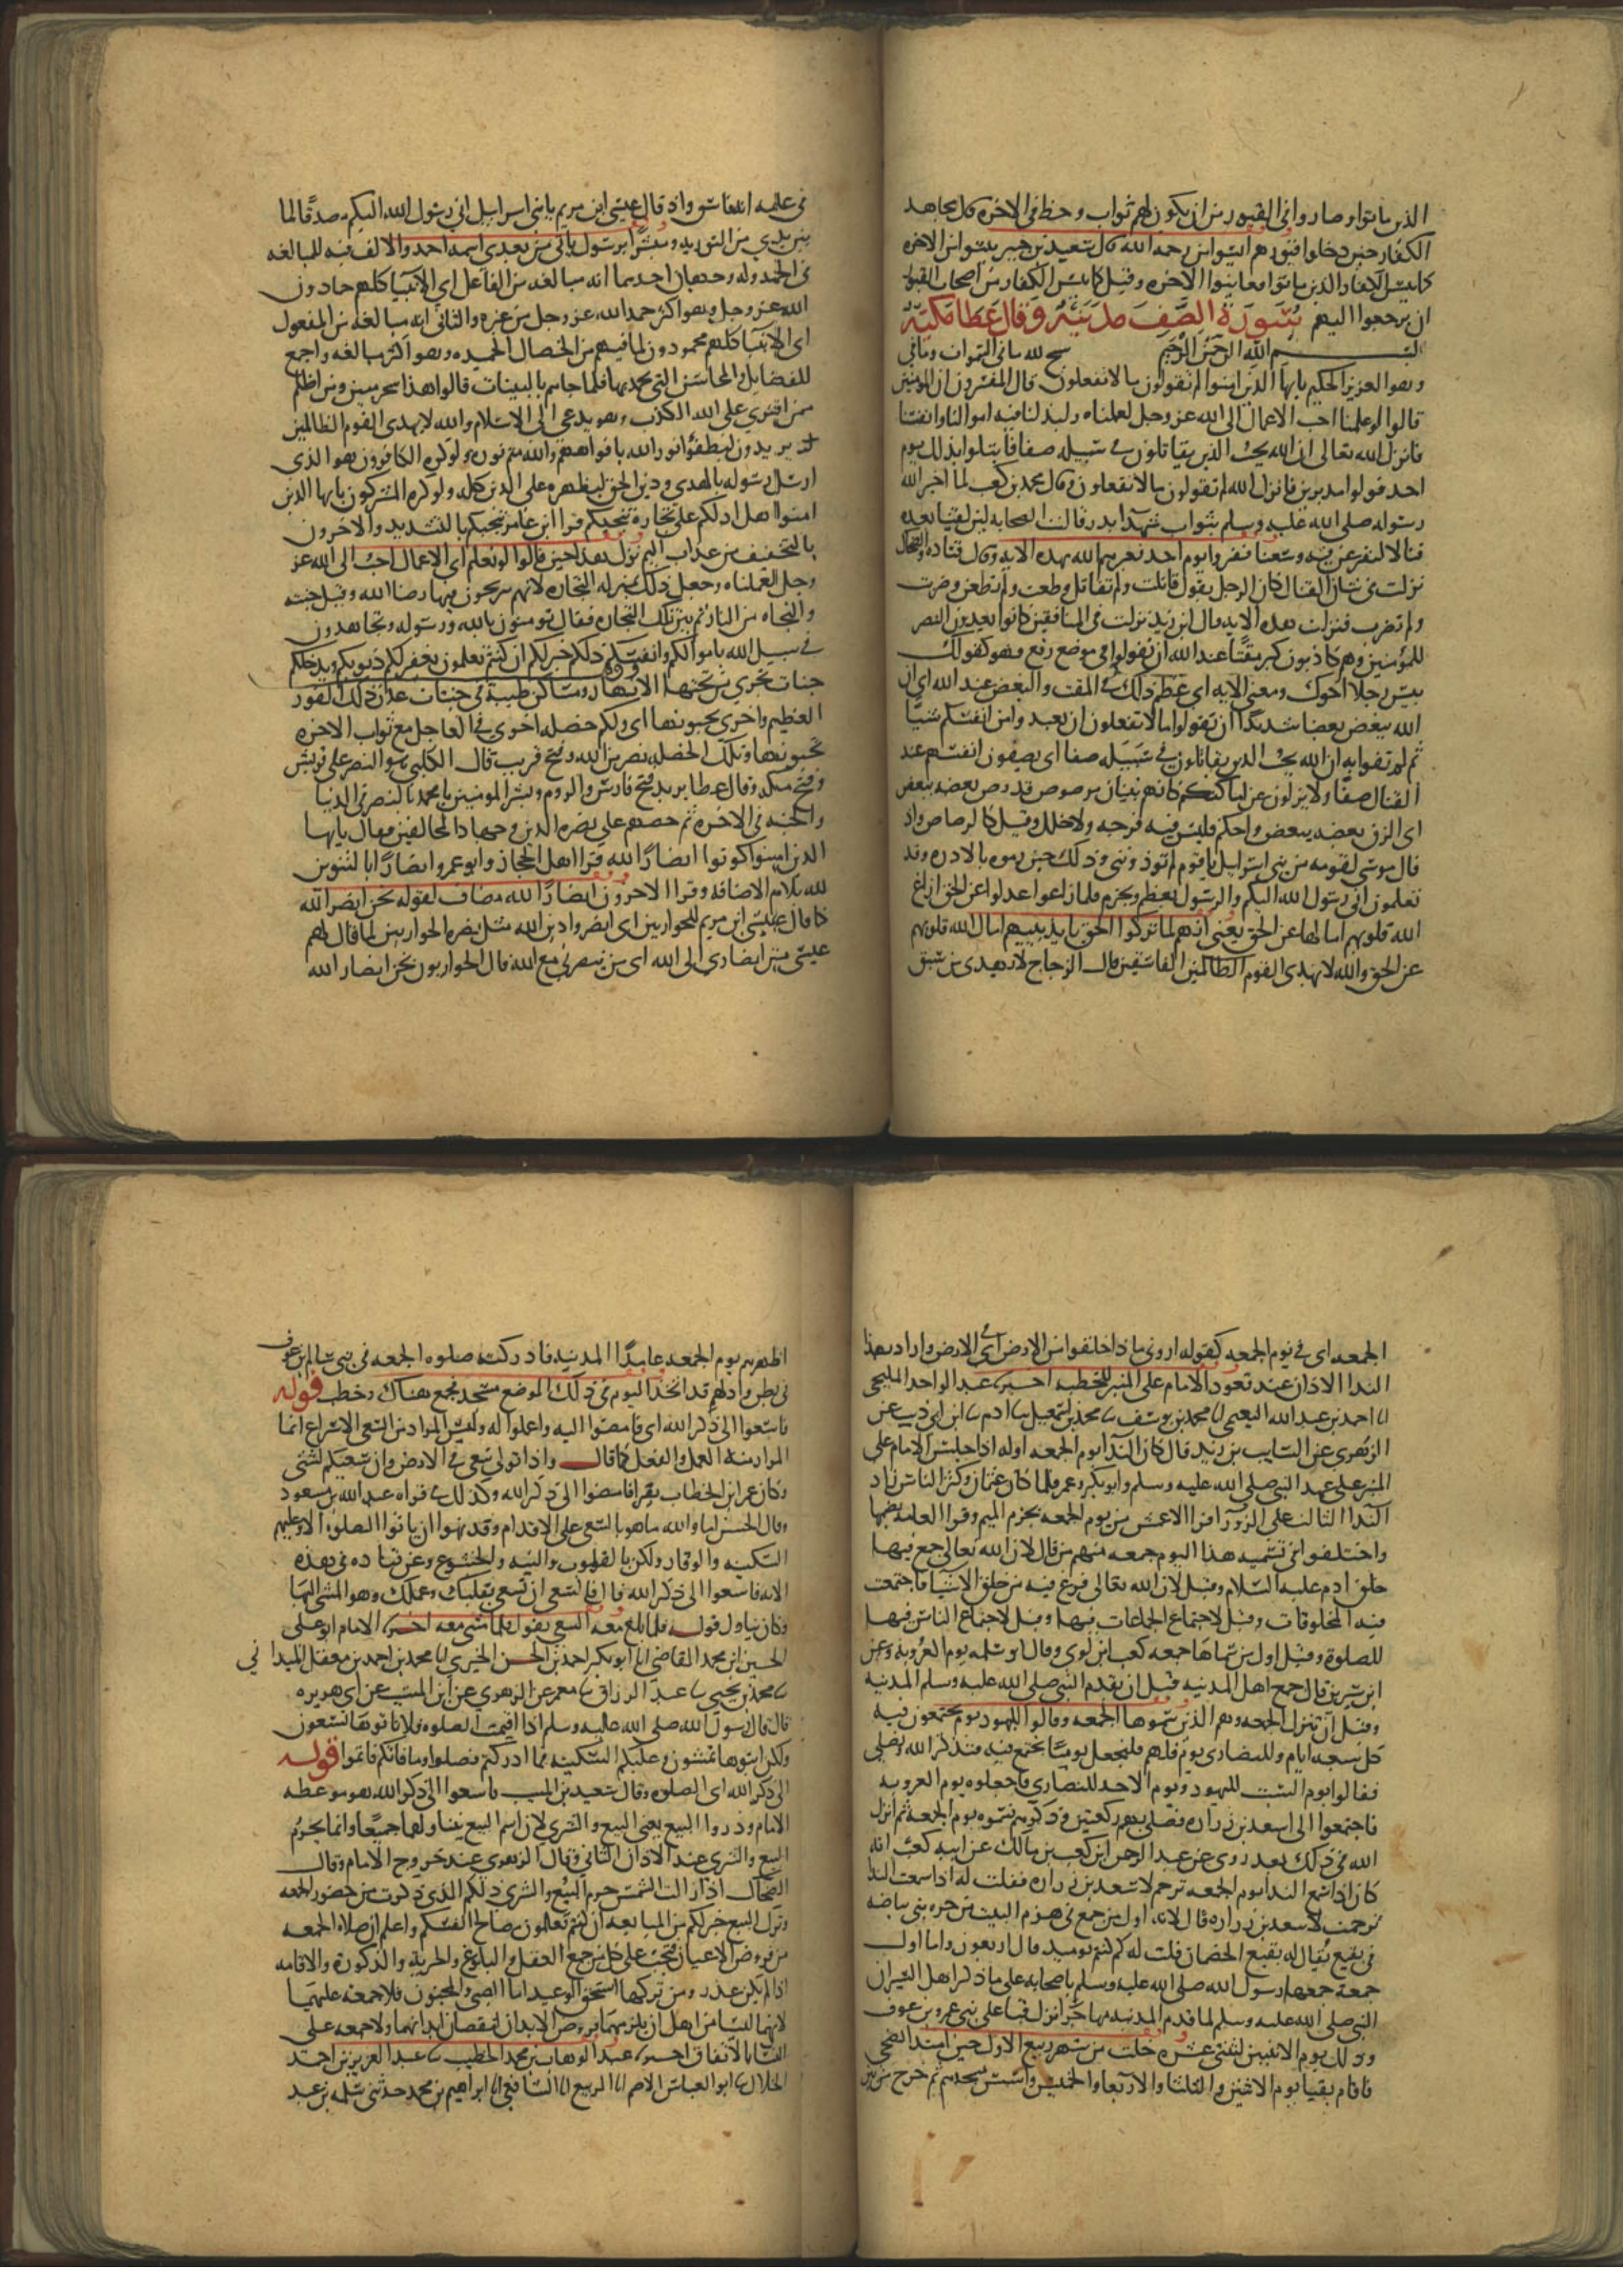 الذين ماتوا وصاروا في القبور من ان يكون لهم ثواب وحظ في الاخرة قال مجاهد
الكفار حين دخلوا قبورهم ايسوا من رحمه الله قال سعيد بن جبير يئسوا من الاخره
كما يئس الكفار الذين ماتوا فعاينوا الاخره وقيل كما يئس الكفار من اصحاب القبور
ان يرجعوا اليهم سورة الصف مدنية وقال عطا مكية
بسم الله الرحمن الرحيم سبح لله ما في السموات وما في
وهو العزيز الحكيم يايها الذين امنوا لم تقولون ما لا تفعلون قال المفسرون ان المومنين
قالوا لو علمنا احب الاعمال الى الله عز وجل لعملناه ولبذلنا فيه اموالنا وانفسنا
فانزل الله تعالى ان الله يحب الذين يقاتلون في سبيله صفا فابتلوا بذلك يوم
احد فولوا مدبرين فانزل الله لم تقولون ما لا تفعلون وقال محمد بن كعب لما اخبر الله
رسوله صلى الله عليه وسلم بثواب شهدا بدر قالت الصحابه لئن لقينا بعده
قتالا لنفرغن فيه وسعنا ففروا يوم احد فعيرهم الله بهذه الايه وقال قتاده والضحاك
نزلت في شان القتال كان الرجل يقول قاتلت ولم تقاتل وطعنت ولم تطعن وضربت
ولم تضرب فنزلت هذه الايه قال ابن زيد نزلت في المنافقين كانوا يعدون النصر
للمؤمنين وهم كاذبون كبر مقتا عند الله ان تقولوا في موضع رفع وهو كقولك
بئس رجلا اخوك ومعنى الايه اي عظم ذلك في المقت والبغض عند الله اي ان
الله يبغض بغضا شديدا ان تقولوا ما لا تفعلون ان يعد وامن انفسكم شيا
ثم لم تفوا به ان الله يحب الذين يقاتلون في سبيله صفا اي يصفون انفسهم عند
القتال صفا ولا يزلون عن اماكنهم كانهم بنيان مرصوص قد رص بعضه ببعض
اي الزق بعضه ببعض واحكم فليس فيه فرجه ولا خلل وقيل كالرصاص واذ
قال موسى لقومه من بني اسرايل يا قوم لم توذونني وذلك حين رموه بالادره وقد
تعلمون اني رسول الله اليكم والرسول يعظم ويحترم فلما زاغوا عدلوا عن الحق ازاغ
الله قلوبهم امالها عن الحق يعني انهم لما تركوا الحق بايذا نبيهم امال الله قلوبهم
عن الحق والله لا يهدي القوم الظالمين الفاسقين قال الزجاج لا يهدي من سبق
في علمه انه فاسق واذ قال عيسى ابن مريم يا بني اسرايل اني رسول الله اليكم مصدقا لما
بين يدي من التوريه ومبشرا برسول ياتي من بعدي اسمه احمد والالف فيه للمبالغه
في الحمد وله وجهان احدهما انه مبالغه من الفاعل اي الانبيا كلهم حمادون
الله عز وجل وهو اكثر حمدا لله عز وجل من غيره والثاني انه مبالغه من المفعول
اي الانبيا كلهم محمودون لما فيهم من الخصال الحميده وهو اكثر مبالغه واجمع
للفضايل والمحاسن التي يحمد بها فلما جاهم بالبينات قالوا هذا سحر مبين ومن اظلم
ممن افترى على الله الكذب وهو يدعى الى الاسلام والله لا يهدي القوم الظالمين
يريدون ليطفؤا نور الله بافواههم والله متم نوره ولو كره الكافرون هو الذي
ارسل رسوله بالهدى ودين الحق ليظهره على الدين كله ولو كره المشركون يايها الذين
امنوا هل ادلكم على تجارة تنجيكم قرا ابن عامر تنجيكم بالتشديد والاخرون
بالتخفيف من عذاب اليم نزل هذا حين قالوا لو نعلم اي الاعمال احب الى الله عز
وجل لعملناه وجعل ذلك بمنزله التجاره لانهم يربحون فيها رضا الله وقيل جنته
والنجاه من النار ثم بين تلك التجاره فقال تومنون بالله ورسوله وتجاهدون
في سبيل الله باموالكم وانفسكم ذلكم خير لكم ان كنتم تعلمون يغفر لكم ذنوبكم ويدخلكم
جنات تجري من تحتها الانهار ومساكن طيبة في جنات عدن ذلك الفوز
العظيم واخرى تحبونها اي ولكم خصله اخرى في العاجل مع ثواب الاخره
تحبونها وتلك الخصله نصر من الله وفتح قريب قال الكلبي هو النصر على قريش
وفتح مكه وقال عطا يريد فتح فارس والروم وبشر المومنين يا محمد بالنصر في الدنيا
والجنه في الاخره ثم حضهم على نصره الدين وجهاد المخالفين فقال يايها
الذين امنوا كونوا انصارا لله قرا اهل الحجاز وابو عمرو انصارا بالتنوين
لله بلام الاضافه وقرا الاخرون انصار الله مضاف لقوله نحن انصار الله
كما قال عيسى ابن مريم للحواريين اي انصروا دين الله مثل نصره الحواريين لما قال لهم
عيسى من انصاري الى الله اي من ينصرني مع الله قال الحواريون نحن انصار الله
الجمعه اي في يوم الجمعه كقوله اروني ماذا خلقوا من الارض اي في الارض واراد بهذا
الندا الاذان عند قعود الامام على المنبر للخطبه اخبرنا عبد الواحد المليحي
انا احمد بن عبد الله النعيمي انا محمد بن يوسف نا محمد بن اسمعيل نا ادم نا ابن ابي ذيب عن
الزهري عن السايب بن يزيد قال كان الندا يوم الجمعه اوله اذا جلس الامام على
المنبر على عهد النبي صلى الله عليه وسلم وابو بكر وعمر فلما كان عثمان وكثر الناس زاد
الندا الثالث على الزورا قرا الاعمش من يوم الجمعه بجزم الميم وقرا العامه بضمها
واختلفوا في تسميه هذا اليوم جمعه منهم من قال لان الله تعالى جمع فيها
خلق ادم عليه السلام وقيل لان الله تعالى فرغ فيه من خلق الاشيا فاجتمعت
فيه المخلوقات وقيل لاجتماع الجماعات فيها وقيل لاجتماع الناس فيها
للصلوة وقيل اول من سماها جمعه كعب ابن لوي وقال ابو سلمه يوم العروبه وعن
ابن سيرين قال جمع اهل المدينه قبل ان يقدم النبي صلى الله عليه وسلم المدينه
وقبل ان تنزل الجمعه وهم الذين سموها الجمعه وقالوا لليهود يوم يجتمعون فيه
كل سبعه ايام وللنصارى يوم فلهم فلنجعل يوما نجتمع فيه فنذكر الله ونصلي
فقالوا يوم السبت لليهود ويوم الاحد للنصارى فاجعلوه يوم العروبه
فاجتمعوا الى اسعد بن زراره فصلى بهم ركعتين وذكرهم فسموه يوم الجمعه ثم انزل
الله في ذلك بعد روى عن عبد الرحمن ابن كعب بن مالك عن ابيه كعب انه
كان اذا سمع الندا يوم الجمعه ترحم لاسعد بن زراره فقلت له اذا سمعت الندا
ترحمت لاسعد بن زراره قال لانه اول من جمع في هزم البيت من حره بني بياضه
في بقيع يقال له بقيع الخضمات قلت له كم كنتم يوميذ قال اربعون واما اول
جمعة جمعها رسول الله صلى الله عليه وسلم باصحابه على ما ذكر اهل السير ان
النبي صلى الله عليه وسلم لما قدم المدينه مهاجرا نزل قبا على بني عمرو بن عوف
وذلك يوم الاثنين لثنتي عشره خلت من شهر ربيع الاول حين امتد الضحى
فاقام بقبا يوم الاثنين والثلثا والاربعا والخميس واسس مسجدهم ثم خرج من بين
اظهرهم يوم الجمعه عامدا المدينه فادركته صلوه الجمعه في بني سالم بن عوف
في بطن واد لهم قد اتخذ اليوم في ذلك الموضع مسجد فجمع هناك وخطب قوله
فاسعوا الى ذكر الله اي فامضوا اليه واعملوا له وليس المراد من السعي الاسراع انما
المراد منه العمل والفعل كما قال واذا تولى سعى في الارض وان سعيكم لشتى
وكان عمر ابن الخطاب يقرا فامضوا الى ذكر الله وكذلك في قراه عبد الله بن مسعود
وقال الحسن اما والله ما هو بالسعي على الاقدام وقد نهوا ان ياتوا الصلوه الا وعليهم
السكينه والوقار ولكن بالقلوب والنيه والخشوع وعن قتاده في هذه
الايه فاسعوا الى ذكر الله قال فالسعي ان تسعى بقلبك وعملك وهو المشي اليها
وكان يتاول قوله فلما بلغ معه السعي يقول فلما مشى معه اخبرنا الامام ابو علي
الحسين ابن محمد القاضي انا ابو بكر احمد بن الحسن الحيري انا محمد بن احمد بن معقل الميداني
نا محمد بن يحيى نا عبد الرزاق نا معمر عن الزهري عن ابن المسيب عن ابي هريره
قال قال رسول الله صلى الله عليه وسلم اذا اقيمت الصلوه فلا تاتوها تسعون
ولكن ايتوها تمشون وعليكم السكينه فما ادركتم فصلوا وما فاتكم فاتموا قوله
الى ذكر الله اي الصلوه وقال سعيد بن المسيب فاسعوا الى ذكر الله هو موعظه
الامام وذروا البيع يعني البيع والشرى لان اسم البيع يتناولهما جميعا وانما يحرم
البيع والشرى عند الاذان الثاني وقال الزهري عند خروج الامام وقال
الضحاك اذا زالت الشمس حرم البيع والشرى ذلكم الذي ذكرت من حضور الجمعه
وترك البيع خير لكم من المبايعه ان كنتم تعلمون مصالح انفسكم واعلم ان صلاة الجمعه
من فروض الاعيان فتجب على كل من جمع العقل والبلوغ والحرية والذكورة والاقامه
اذا لم يكن عذر ومن تركها استحق الوعيد اما الصبي والمجنون فلا جمعه عليهما
لانهما ليسا من اهل ان يلزمهما فروض الابدان لنقصان ابدانهما ولا جمعه على
النسا بالاتفاق اخبرنا عبد الوهاب بن محمد الخطيب نا عبد العزيز بن احمد
الخلال نا ابو العباس الاصم انا الربيع انا الشافعي انا ابراهيم بن محمد حدثني سلمه بن عبد